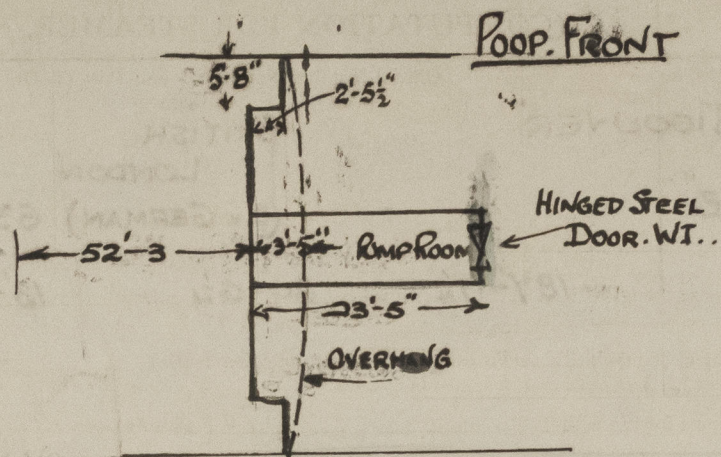 POOP. FRONT
5'-8"
2'-5½"
HINGED STEEL
DOOR. WT..
52'-3
3'-5"
PUMP ROOM
23'-5"
OVERHANG
LONDON
GERMAN)